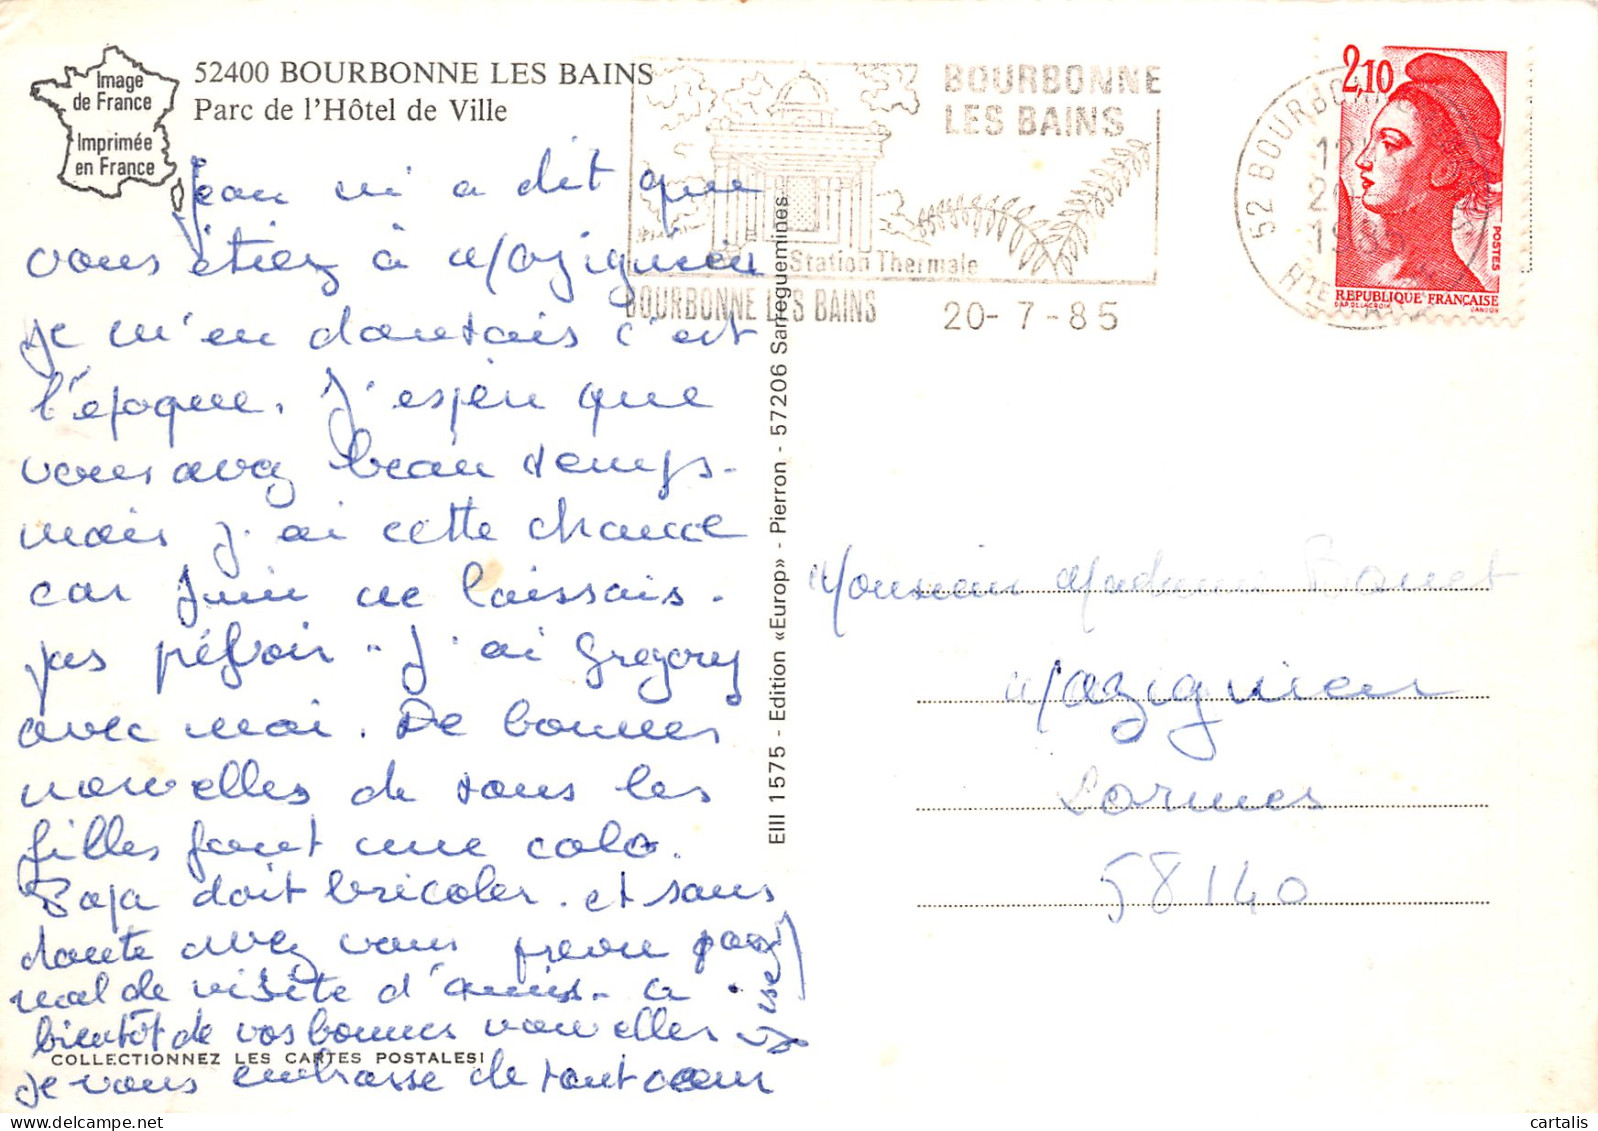 Image
de France
Imprimée
en France
52400 BOURBONNE LES BAINS
Parc de l'Hôtel de Ville
BOURBONNE
LES BAINS
Station Thermale
BOURBONNE LES BAINS
20-7-85
52 BOURBONNE
1985
2,10
POSTES
REPUBLIQUE FRANÇAISE
GANDON
Jean m'a dit que
vous étiez à Mazignien
je m'en doutais c'est
l'époque. J'espère que
vous avez beau temps.
mais j'ai cette chance
car Juin ne laissais.
pas prévoir.. J'ai Gregory
avec moi. De bonnes
nouvelles de tous les
filles font une colo.
Papa doit bricoler. et sans
doute avez vous pas
mal de visite d'amis. a
bientôt de vos bonnes nouvelles
je vous embrasse de tout cœur
COLLECTIONNEZ LES CARTES POSTALES!
EIII 1575 - Edition «Europ» - Pierron - 57206 Sarreguemines
Monsieur Madame Bonet
Mazignien
Lormes
58140
cartalis